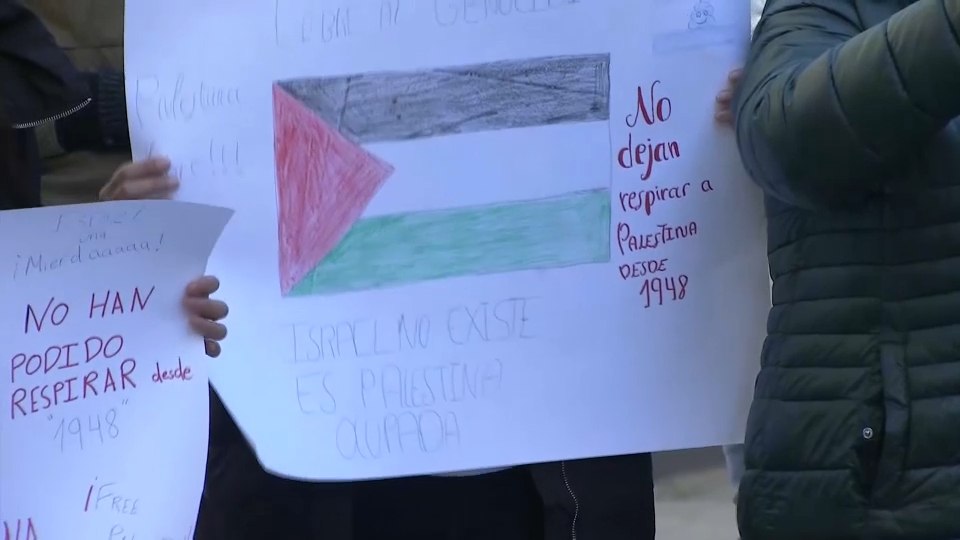 AL GENOCIDI
Palestina
No
dejan
respirar a
PALESTINA
DESDE
1948
ISRAEL NO EXISTE
ES PALESTINA
OCUPADA
una
¡Mierdaaaaa!
NO HAN
PODIDO
RESPIRAR desde
"1948"
¡FREE